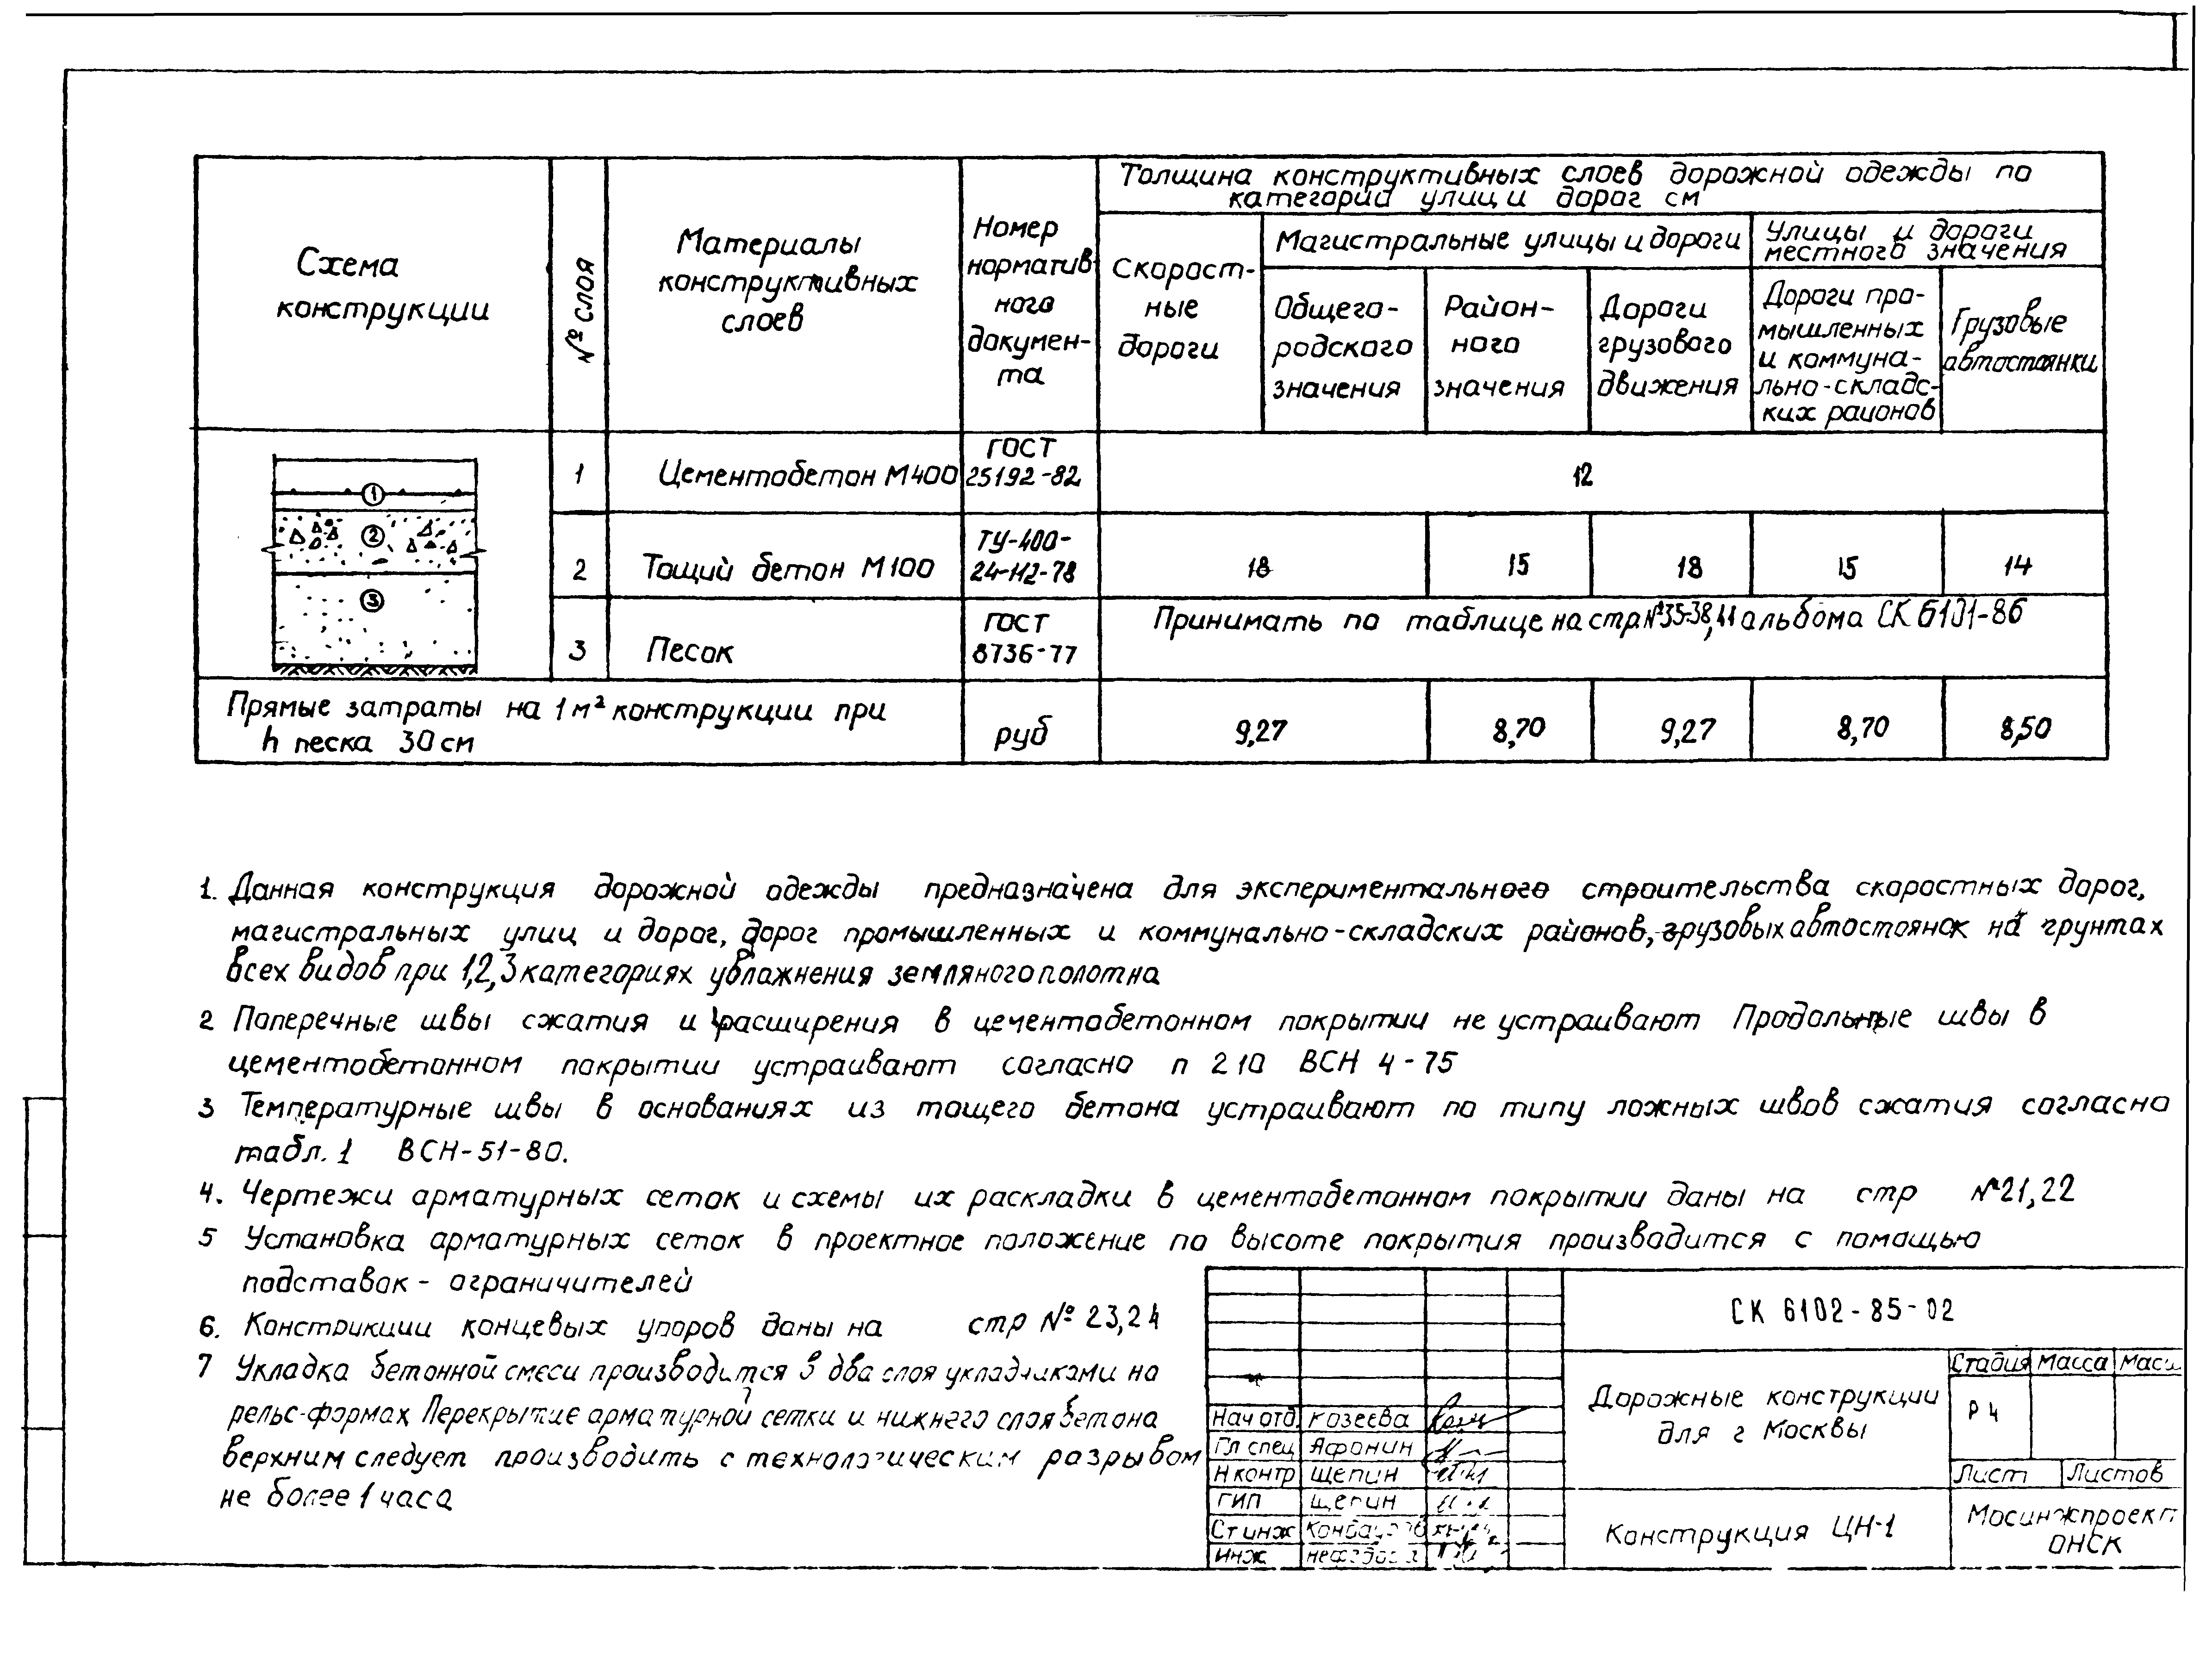 Схема
конструкции
№ слоя
Материалы
конструктивных
слоев
Номер
норматив-
ного
докумен-
та
Толщина конструктивных слоев дорожной одежды по
категории улиц и дорог см
Скорост-
ные
дороги
Магистральные улицы и дороги
Улицы и дороги
местного значения
Общего-
родского
значения
Район-
ного
значения
Дороги
грузового
движения
Дороги про-
мышленных
и коммуна-
льно-складс-
ких районов
Грузовые
автостоянки
1
2
3
1 Цементобетон М400 ГОСТ
25192-82
12
2 Тощий бетон М100 ТУ-400-
24-112-78
18 15 18 15 14
3 Песок ГОСТ
8736-77
Принимать по таблице на стр.№35-38,41 альбома СК 6101-86
Прямые затраты на 1 м² конструкции при
h песка 30 см
руб 9,27 8,70 9,27 8,70 8,50
1. Данная конструкция дорожной одежды предназначена для экспериментального строительства скоростных дорог,
магистральных улиц и дорог, дорог промышленных и коммунально-складских районов, грузовых автостоянок на грунтах
всех видов при 1,2,3 категориях увлажнения земляного полотна
2 Поперечные швы сжатия и расширения в цементобетонном покрытии не устраивают Продольные швы в
цементобетонном покрытии устраивают согласно п 2 10 ВСН 4-75
3 Температурные швы в основаниях из тощего бетона устраивают по типу ложных швов сжатия согласно
табл. 1 ВСН-51-80.
4. Чертежи арматурных сеток и схемы их раскладки в цементобетонном покрытии даны на стр №21,22
5 Установка арматурных сеток в проектное положение по высоте покрытия производится с помощью
подставок - ограничителей
6. Конструкции концевых упоров даны на стр № 23,24
7 Укладка бетонной смеси производится в два слоя укладчиками на
рельс-формах Перекрытие арматурной сетки и нижнего слоя бетона
верхним следует производить с технологическим разрывом
не более 1 часа
СК 6102-85-02
Дорожные конструкции
для г Москвы
Стадия Масса Масш
Р 4
Лист Листов
Нач отд Козеева
Гл спец Афонин
Н контр Щепин
ГИП Щепин
Ст инж
Инж
Конструкция ЦН-1
Мосинжпроект
ОНСК